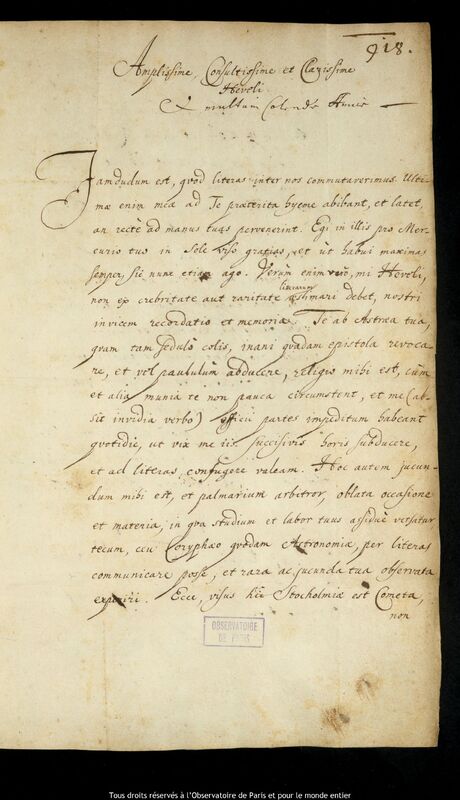 918.
Amplissime, Consultissime et Clarissime
Heveli
multum Colende Amice —
Jamdudum est, qvod literas inter nos commutaverimus. Ulti-
mæ enim meæ ad Te præterita hyeme abibant, et latet,
an rectè ad manus tuas pervenerint. Egi in illis pro Mer-
curio tuo in Sole viso gratias, et ùt habui maximas
semper, sic nunc etiam ago. Verum enim verò, mi Heveli,
non ex crebritate aut raritate literarum æstimari debet, nostri
invicem recordatio et memoria. Te ab Astræa tua,
qvam tam sedulò colis, inani qvadam epistola revoca-
re, et vel paululum abducere, religio mihi est, cum
et alia munia te non pauca circumstent, et me (ab-
sit invidia verbo) officii partes impeditum habeant
qvotidie, ut vix me iis succisivis horis subducere,
et ad literas confugere valeam. Hoc autem jucun-
dum mihi est, et palmarium arbitror, oblata occasione
et materia, in qva studium et labor tuus assiduè versatur
tecum, ceu Coryphæo qvodam Astronomiæ, per literas
communicare posse, et rara ac jucunda tua observata
expiriri. Ecce, visus hic Stocholmiæ est Cometa,
non
OBSERVATOIRE
DE PARIS
Tous droits réservés à l'Observatoire de Paris et pour le monde entier